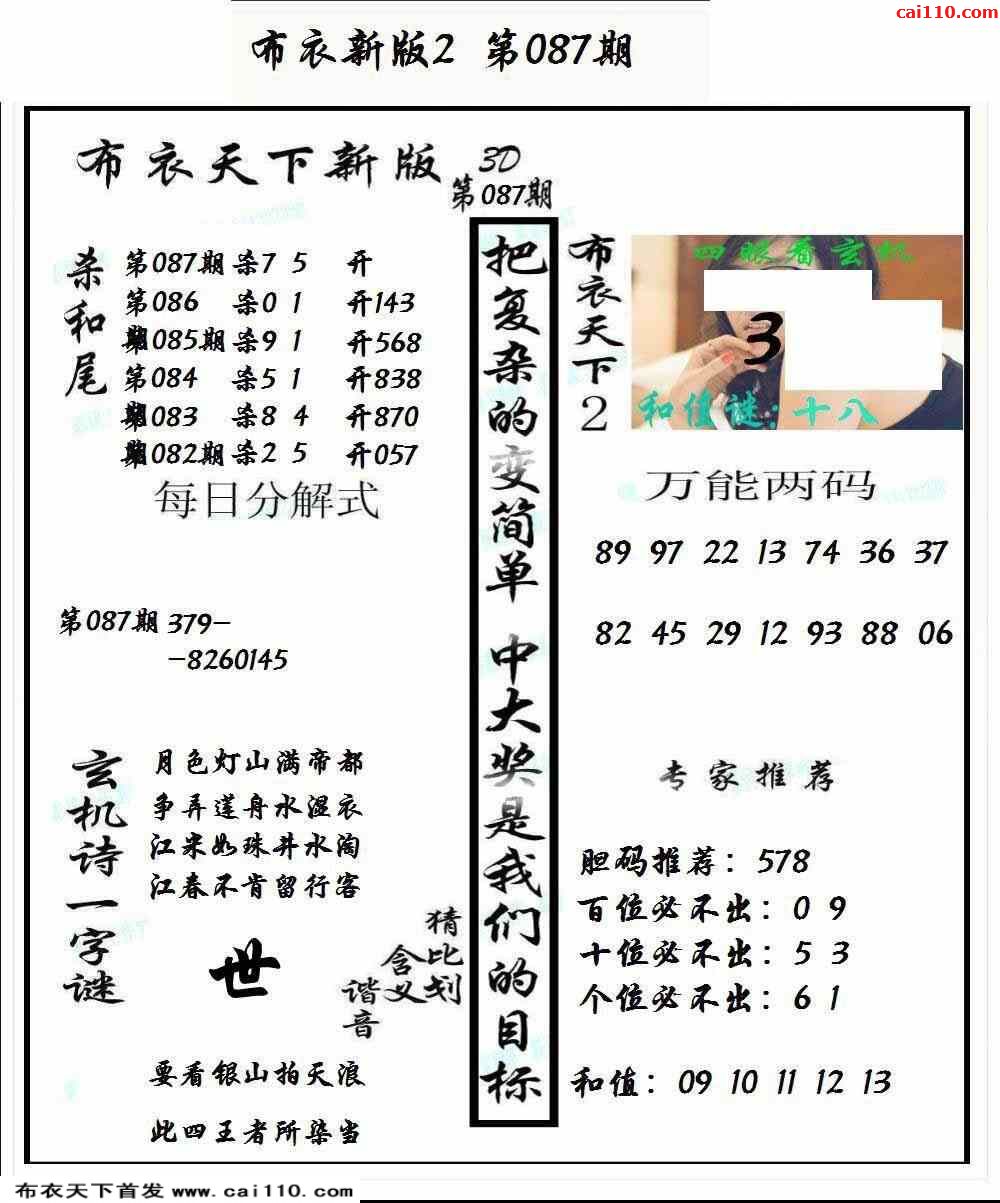 cai110.com
布衣新版2 第087期
布衣天下新版 3D
第087期
杀和尾
第087期 杀7 5 开
第086 杀0 1 开143
期085期 杀9 1 开568
第084 杀5 1 开838
期083 杀8 4 开870
期082期 杀2 5 开057
每日分解式
第087期 379-
-8260145
玄机诗一字谜
月色灯山满帝都
争弄莲舟水湿衣
江米如珠井水淘
江春不肯留行客
世
猜比划
含义
谐音
要看银山拍天浪
此四王者所染当
把复杂的变简单 中大奖是我们的目标
布衣天下2
四眼看玄机
3
和值谜:十八
万能两码
89 97 22 13 74 36 37
82 45 29 12 93 88 06
专家推荐
胆码推荐：578
百位必不出：0 9
十位必不出：5 3
个位必不出：6 1
和值：09 10 11 12 13
布衣天下首发 www.cai110.com